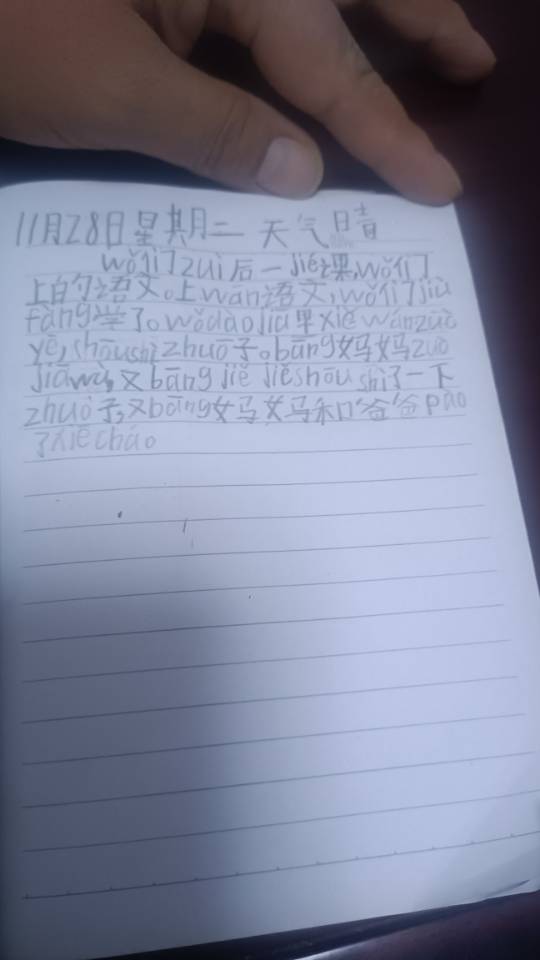 11月28日星期二 天气晴
wǒ们zuì后一jié课,wǒ们
上的语文。上wán语文,wǒ们jiù
fàng学了。wǒdàojiā里xiě wánzuò
yē,shōushízhuō子。bāng妈妈zuò
jiāwù,又bāng jiě jiěshōu shi了一下
zhuō子,又bāng妈妈和爸爸pào
了xiē cháo